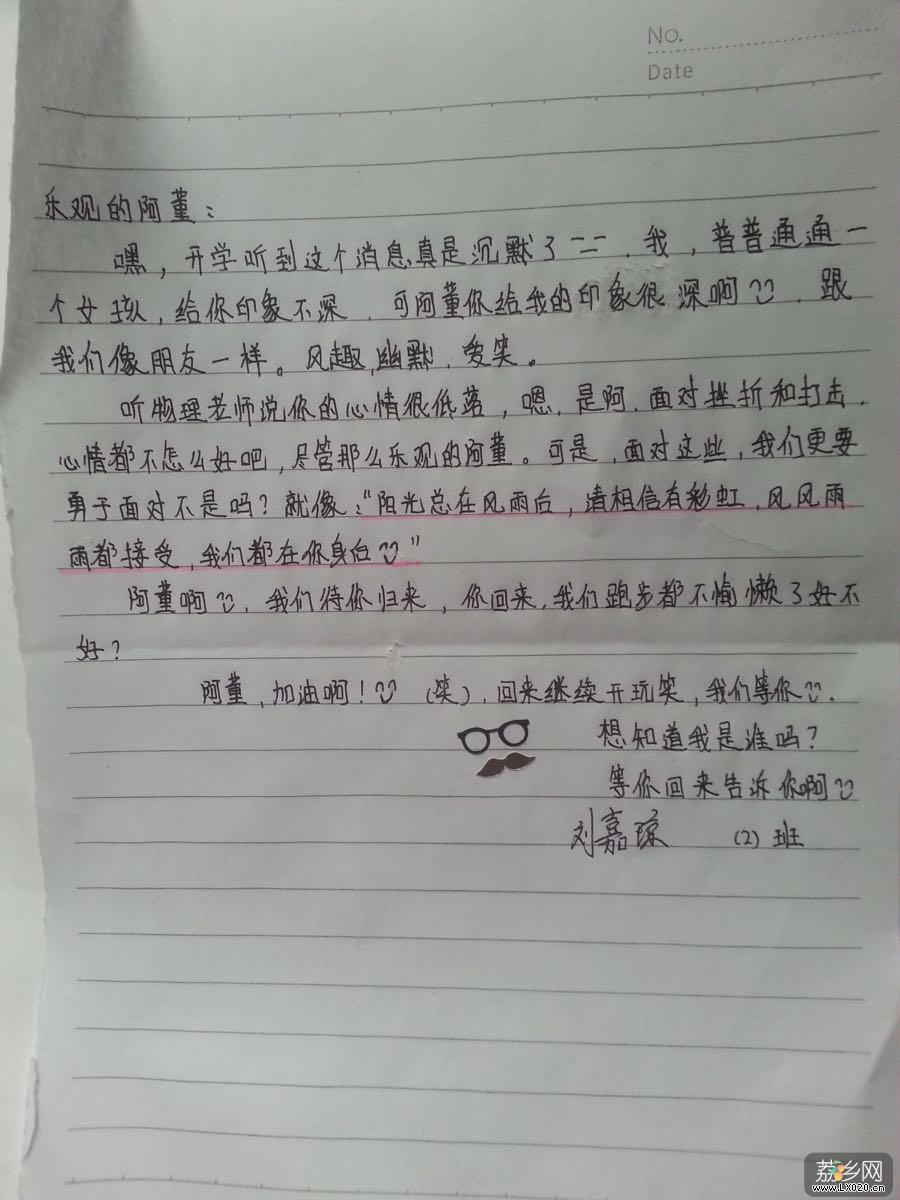 No.
Date
乐观的阿董：
嘿，开学听到这个消息真是沉默了二二．我，普普通通一
个女孩，给你印象不深．可阿董你给我的印象很深啊．跟
我们像朋友一样。风趣，幽默，爱笑。
听物理老师说你的心情很低落，嗯，是阿．面对挫折和打击．
心情都不怎么好吧，尽管那么乐观的阿董。可是，面对这些，我们更要
勇于面对不是吗？就像：“阳光总在风雨后，请相信有彩虹，风风雨
雨都接受，我们都在你身后”
阿董啊，我们待你归来，你回来，我们跑步都不偷懒了好不
好？
阿董，加油啊！（笑），回来继续开玩笑，我们等你．
想知道我是谁吗？
等你回来告诉你啊
刘嘉琼 （2）班
荔乡网
www.LX020.cn